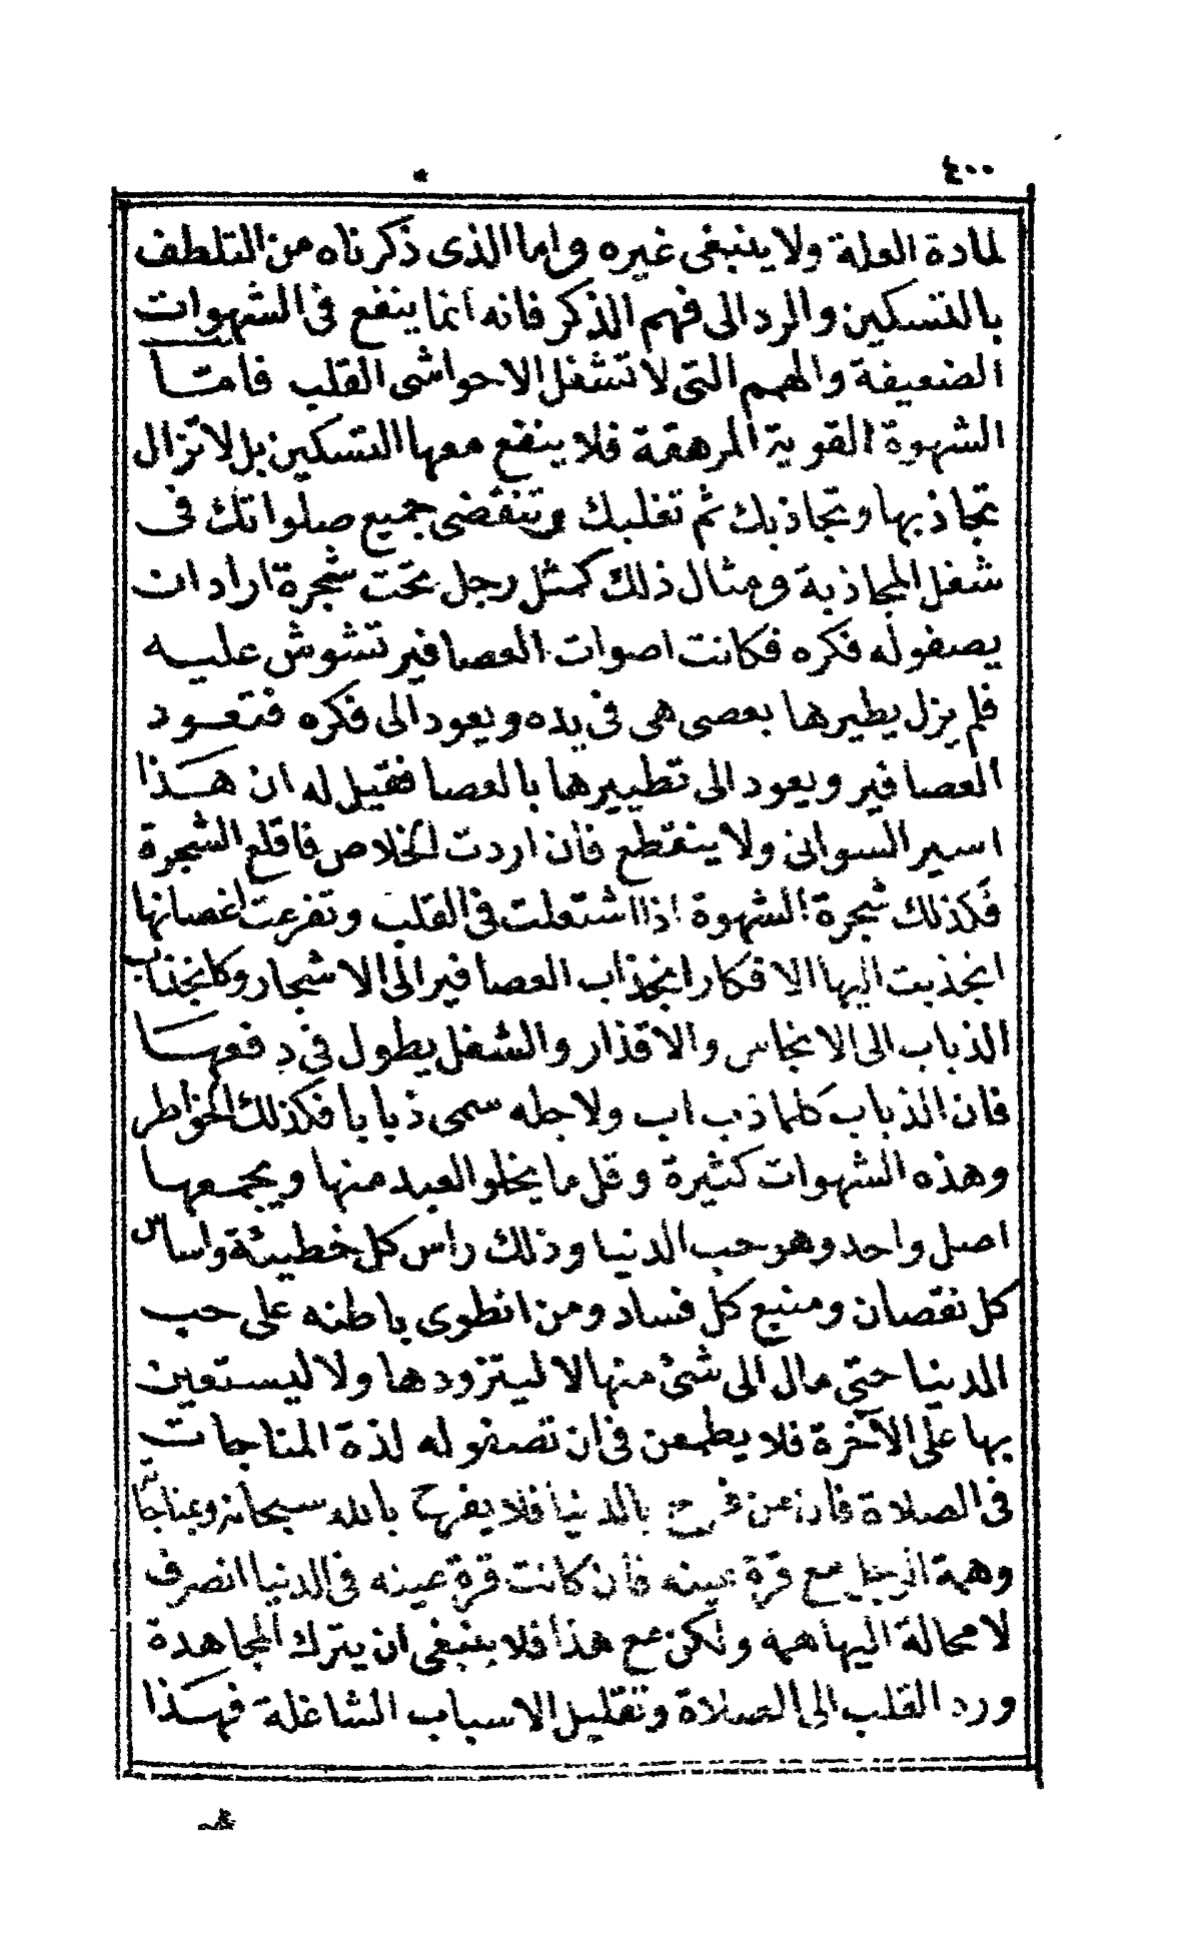 ٤٠٠
لمادة العلة ولا ينبغى غيره واما الذى ذكرناه من التلطف
بالتسكين والرد الى فهم الذكر فانه انما ينفع فى الشهوات
الضعيفة والهمم التى لا تشغل الا حواشى القلب فامـا
الشهوة القوية المرهقة فلا ينفع معها التسكين بل لا تزال
تجاذبها وتجاذبك ثم تغلبك وتنقضى جميع صلواتك فى
شغل المجاذبة ومثال ذلك كمثل رجل تحت شجرة اراد ان
يصفوله فكره فكانت اصوات العصافير تشوش عليه
فلم يزل يطيرها بعصى هى فى يده ويعود الى فكره فتعود
العصافير ويعود الى تطييرها بالعصا فقيل له ان هذا
اسير السوانى ولا ينقطع فان اردت الخلاص فاقلع الشجرة
فكذلك شجرة الشهوة اذا اشتعلت فى القلب وتفرعت اغصانها
انجذبت اليها الافكار انجذاب العصافير الى الاشجار وكانجذاب
الذباب الى الانجاس والاقذار والشغل يطول فى دفعها
فان الذباب كلما ذب اب ولاجله سمى ذبابا فكذلك الخواطر
وهذه الشهوات كثيرة وقل ما يخلو العبد منها ويجمعها
اصل واحد وهو حب الدنيا وذلك راس كل خطيئة واساس
كل نقصان ومنبع كل فساد ومن انطوى باطنه على حب
الدنيا حتى مال الى شئ منها لا ليتزود ها ولا ليستعين
بها على الآخرة فلا يطمعن فى ان تصفو له لذة المناجات
فى الصلاة فان من فرح بالدنيا فلا يفرح بالله سبحانه وبمناجاته
وهمة الرجل مع قرة عينه فان كانت قرة عينه فى الدنيا انصرف
لا محالة اليها همه ولكن مع هذا فلا ينبغى ان يترك المجاهدة
ورد القلب الى الصلاة وتقليل الاسباب الشاغلة فهذا